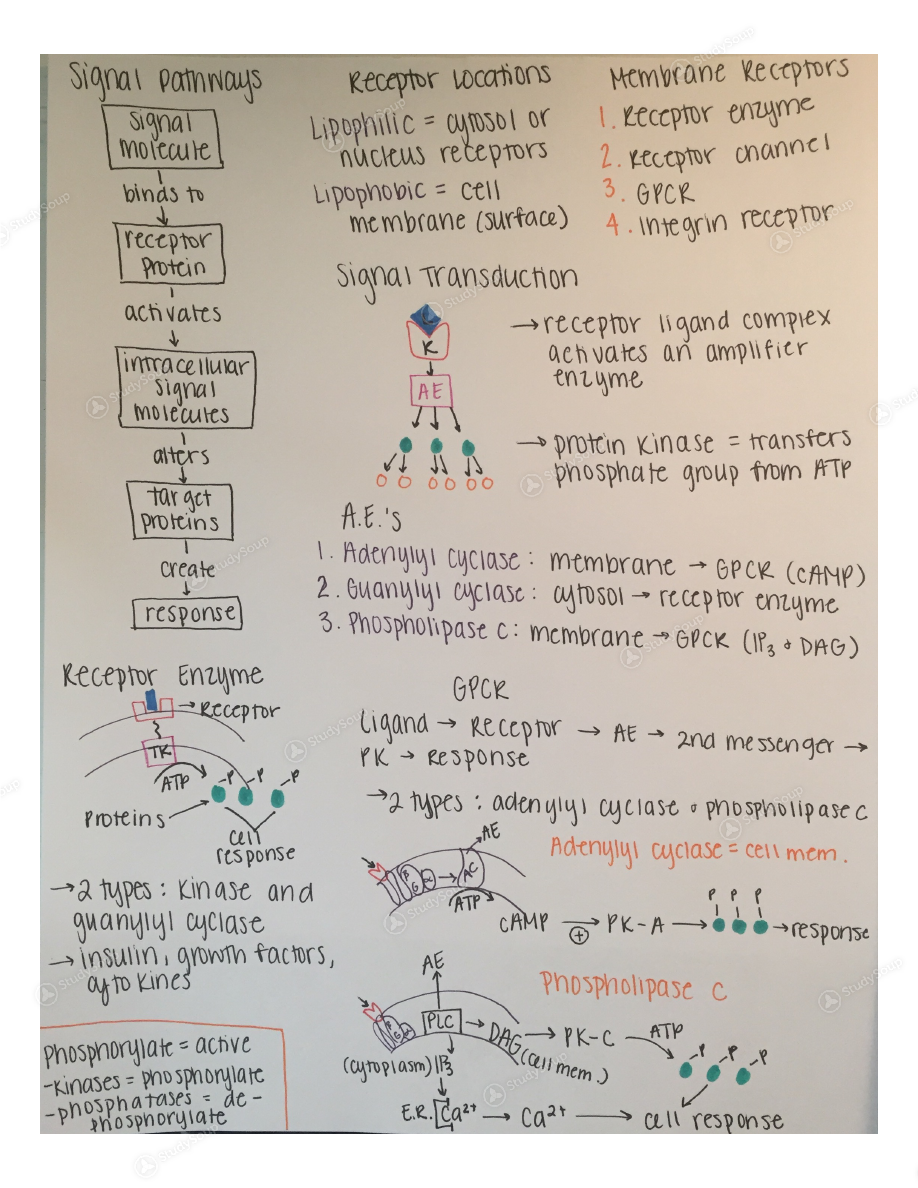 Signal Pathways
signal
molecule
binds to
receptor
protein
activates
intracellular
signal
molecules
alters
target
proteins
create
response
Receptor Locations
Lipophilic = cytosol or
nucleus receptors
Lipophobic = cell
membrane (surface)
Membrane Receptors
1. Receptor enzyme
2. Receptor channel
3. GPCR
4. Integrin receptor
Signal Transduction
L
R
AE
→ receptor ligand complex
activates an amplifier
enzyme
→ protein kinase = transfers
phosphate group from ATP
A.E.'s
1. Adenylyl cyclase: membrane → GPCR (cAMP)
2. Guanylyl cyclase: cytosol → receptor enzyme
3. Phospholipase C: membrane → GPCR (IP3 & DAG)
Receptor Enzyme
→ Receptor
TK
ATP
-P -P -P
Proteins
cell
response
→ 2 types: kinase and
guanylyl cyclase
→ insulin, growth factors,
cytokines
Phosphorylate = active
-kinases = phosphorylate
-phosphatases = de-
phosphorylate
GPCR
Ligand → Receptor → AE → 2nd messenger →
PK → Response
→ 2 types: adenylyl cyclase & phospholipase C
Adenylyl cyclase = cell mem.
AE
β G α → AC
ATP
cAMP → PK-A → → response
+
P P P
Phospholipase C
AE
β G α
PLC → DAG → PK-C
(cell mem.)
ATP
-P -P -P
(cytoplasm) IP3
E.R. Ca2+ → Ca2+ → cell response
StudySoup